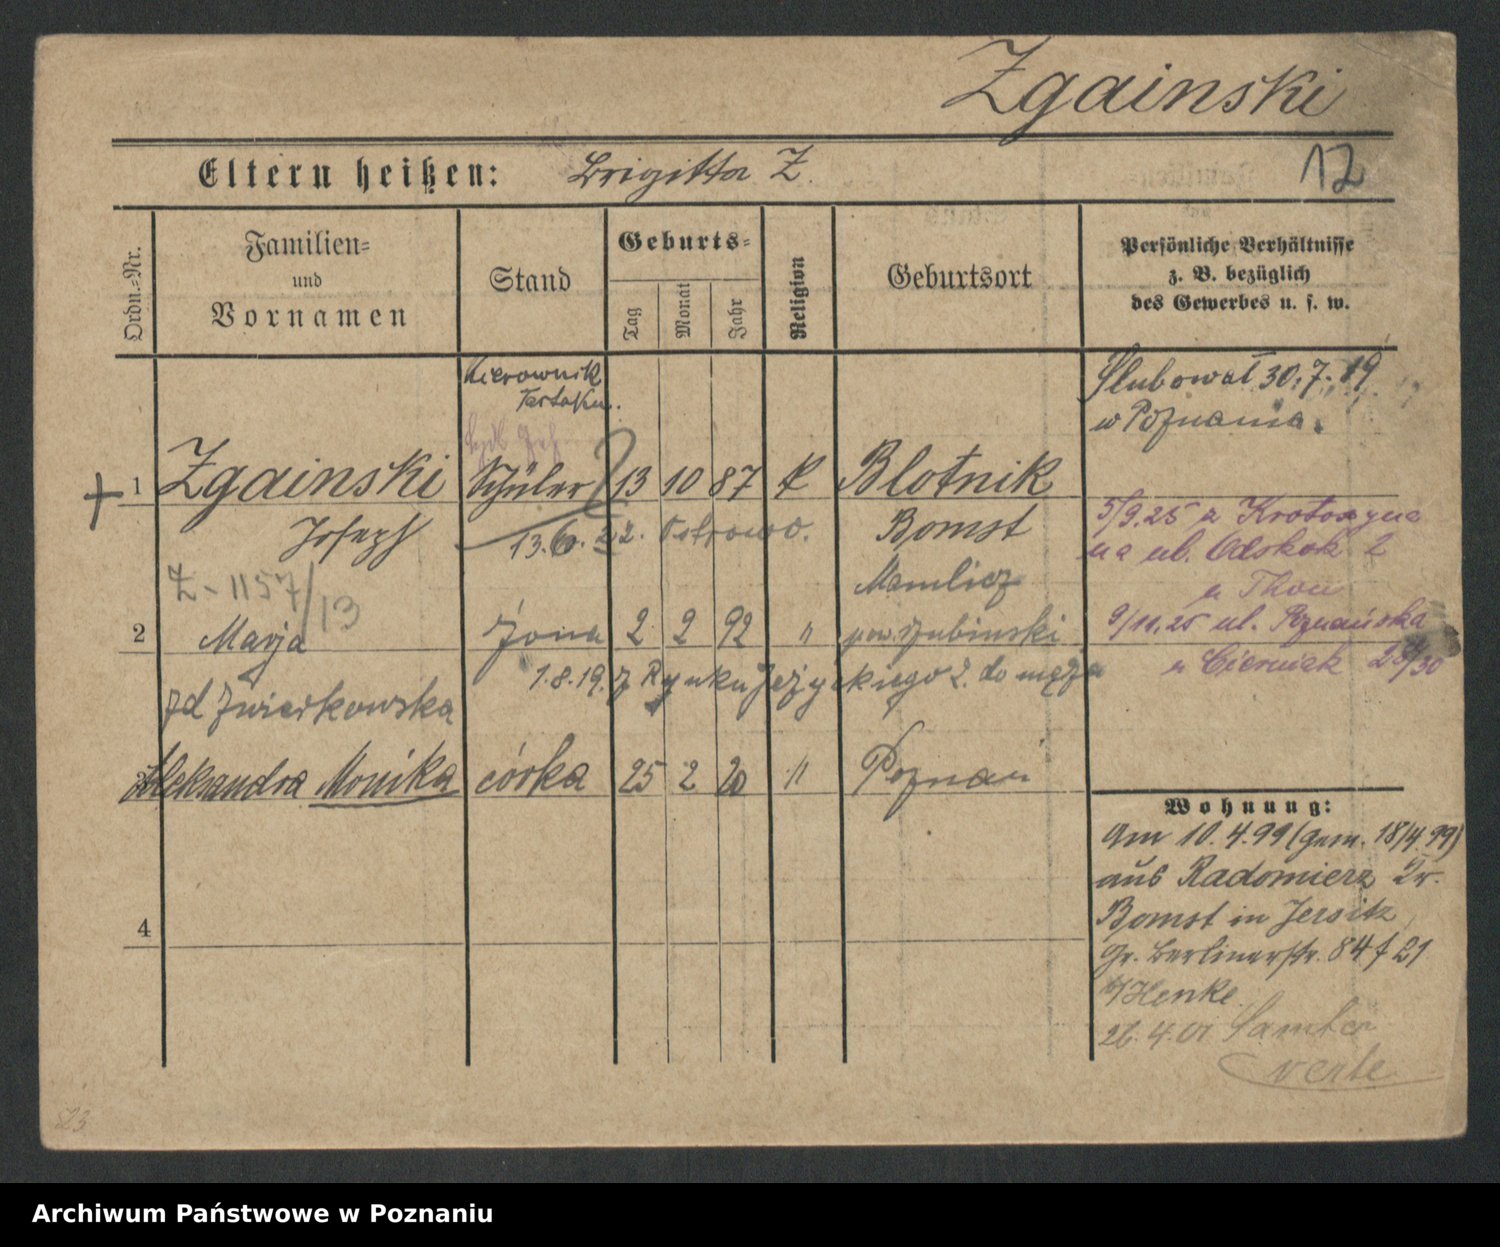 Zgainski
Eltern heißen: Brigitta Z.
12
Ordn.=Nr.
Familien=
und
Vornamen
Stand
Geburts=
Tag
Monat
Jahr
Religion
Geburtsort
Persönliche Verhältnisse
z. B. bezüglich
des Gewerbes u. s. w.
Kierownik
Tartaku.
Ślubował 30.7.19
w Poznaniu.
1 Zgainski Schüler 13 10 87 k Blotnik
Joseph 13.6.22. Ostrowo. Bomst
5/9.25 z Krotoszyna
na ul.
Z-1157/13
Mamlicz
2 Marja żona 2 2 92 " pow. szubinski
9/11.25 ul. Poznańska
1.8.19. z Rynku Jeżyckiego 2. do męża
28/30
zd Zwierkowska
3 Aleksandra Monika córka 25 2 20 " Poznań
Wohnung:
Am 10.4.99 (gem. 18/4.99)
aus Radomierz Kr.
Bomst in Jersitz
Gr. Berlinerstr. 84 f 21
b/Henke
26.4.01 Samter
verte
4
23
Archiwum Państwowe w Poznaniu